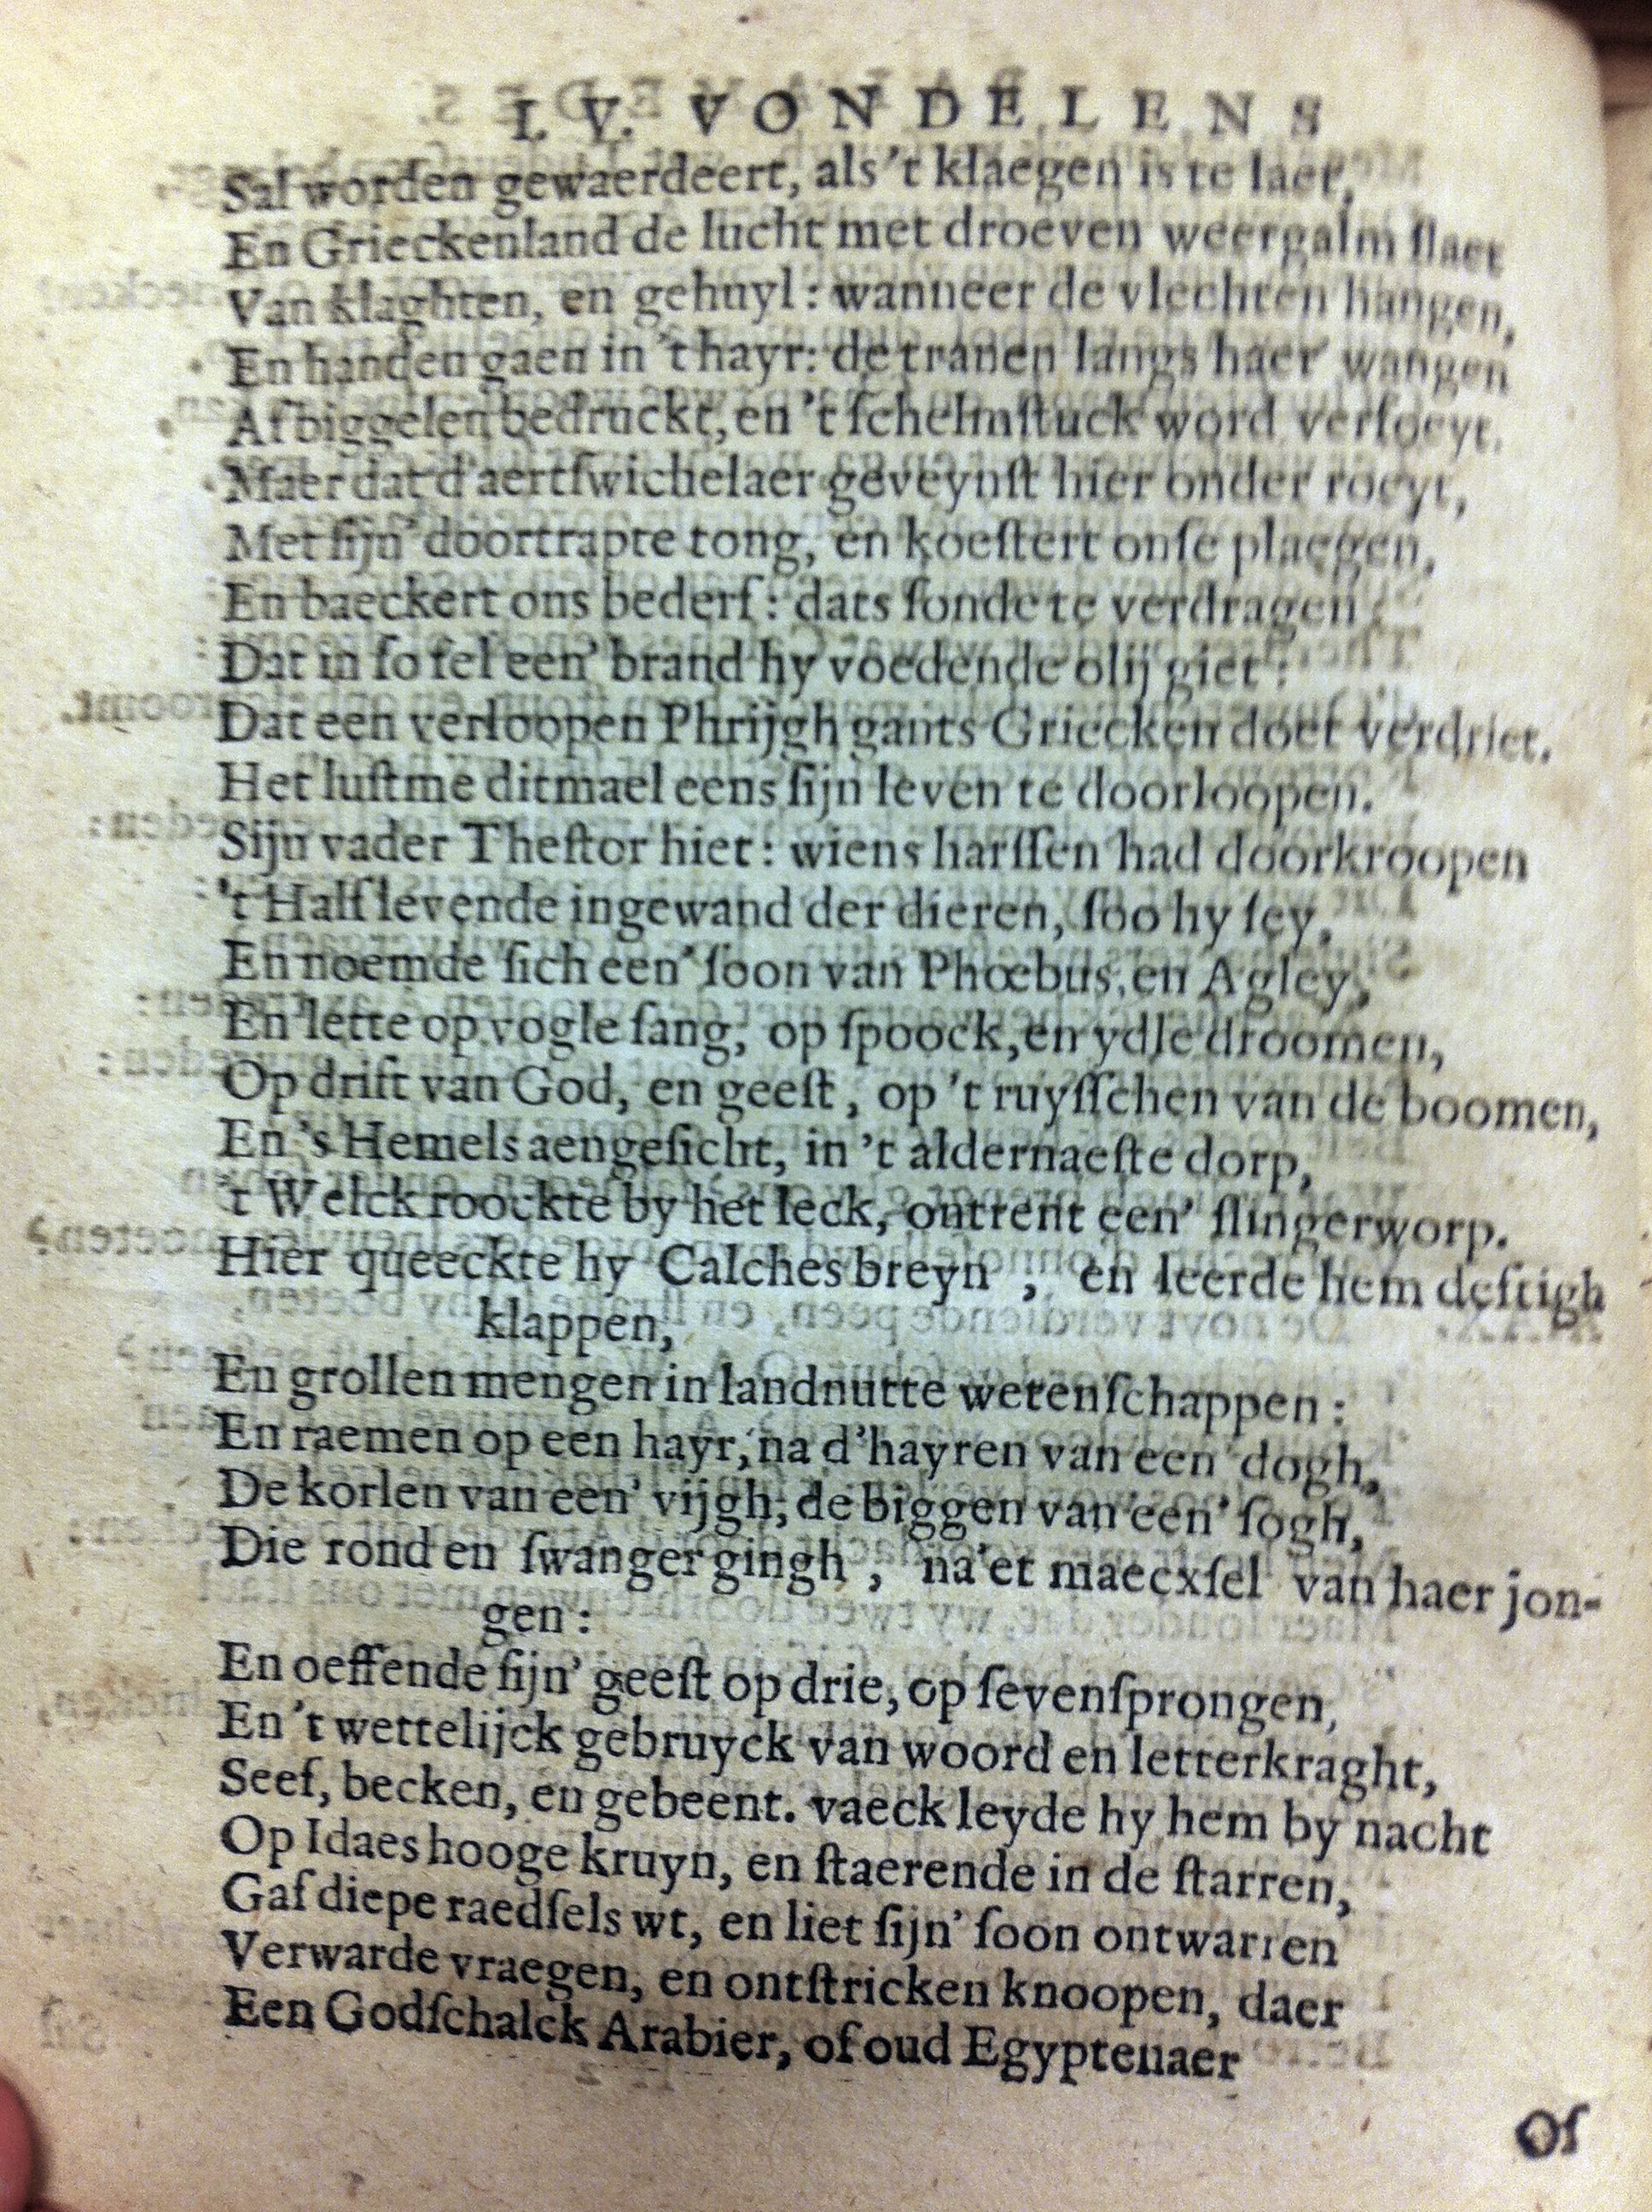 I. V. VONDELENS
Sal worden gewaerdeert, als 't klaegen is te laet,
En Grieckenland de lucht met droeven weergalm ſlaet
Van klaghten, en gehuyl: wanneer de vlechten hangen,
En handen gaen in 't hayr: de tranen langs haer wangen
Afbiggelen bedruckt, en 't ſchelmſtuck word verfoeyt.
Maer dat d'aertſwichelaer geveynſt hier onder roeyt,
Met ſijn' doortrapte tong, en koeſtert onſe plaegen,
En baeckert ons bederf: dats ſonde te verdragen
Dat in ſo fel een' brand hy voedende olij giet:
Dat een verloopen Phrijgh gants Griecken doet verdriet.
Het luſt me ditmael eens ſijn leven te doorloopen.
Sijn vader Theſtor hiet: wiens harſſen had doorkroopen
't Half levende ingewand der dieren, ſoo hy ſey,
En noemde ſich een' ſoon van Phœbus, en Agley,
En lette op vogle ſang, op ſpoock, en ydle droomen,
Op drift van God, en geeſt, op 't ruyſſchen van de boomen,
En 's Hemels aengeſicht, in 't aldernaeſte dorp,
't Welck roockte by het leck, ontrent een' ſlingerworp.
Hier queeckte hy Calches breyn, en leerde hem deftigh
klappen,
En grollen mengen in landnutte wetenſchappen:
En raemen op een hayr, na d'hayren van een dogh,
De korlen van een' vijgh, de biggen van een' ſogh,
Die rond en ſwanger gingh, na'et maecxſel van haer jon-
gen:
En oeffende ſijn' geeſt op drie, op ſevenſprongen,
En 't wettelijck gebruyck van woord en letterkraght,
Seef, becken, en gebeent. vaeck leyde hy hem by nacht
Op Idaes hooge kruyn, en ſtaerende in de ſtarren,
Gaf diepe raedſels wt, en liet ſijn' ſoon ontwarren
Verwarde vraegen, en ontſtricken knoopen, daer
Een Godſchalck Arabier, of oud Egyptenaer
Of